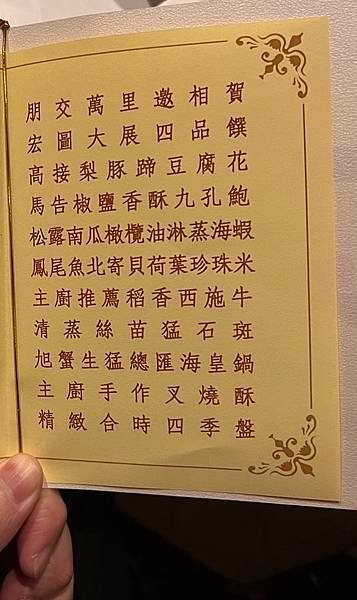 朋交萬里邀相賀
宏圖大展四品饌
高接梨豚蹄豆腐花
馬告椒鹽香酥九孔鮑
松露南瓜橄欖油淋蒸海蝦
鳳尾魚北寄貝荷葉珍珠米
主廚推薦稻香西施牛
清蒸絲苗猛石斑
旭蟹生猛總匯海皇鍋
主廚手作叉燒酥
精緻合時四季盤